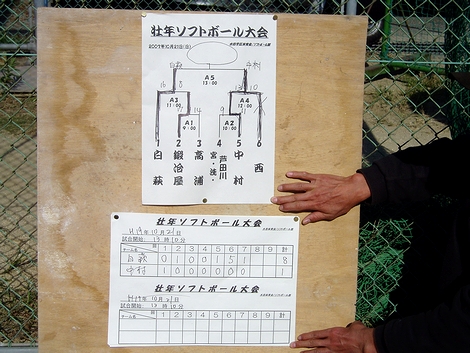 壮年ソフトボール大会
2007年10月21日(日)
白萩 中村
A5
13:00
16 8 13 10
A3
11:00
A4
12:00
14 9
A1
9:00
A2
10:00
1 2 3 4 5 6
白萩
鍛冶屋
高浦
宮・浅・芦田川
中村
西
壮年ソフトボール大会
H19年10月21日
試合開始: 13時10分
チーム名 回 1 2 3 4 5 6 7 8 9 計
白萩 0 1 0 0 1 5 1 8
中村 1 0 0 0 0 0 0 1
壮年ソフトボール大会
H19年10月21日
試合開始: 13時10分
チーム名 回 1 2 3 4 5 6 7 8 9 計